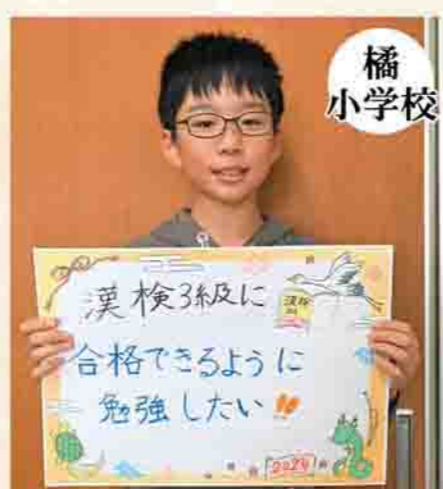 橘
小学校
漢検3級に
合格できるように
勉強したい!!
2024